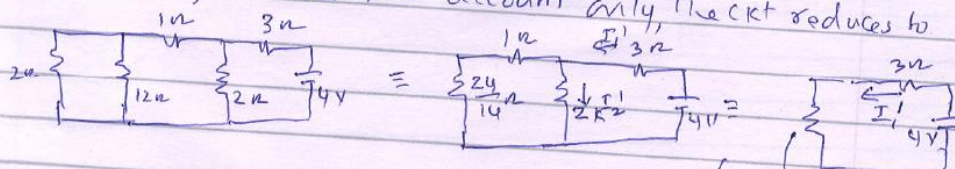 account only, the ckt reduces to
1Ω 3Ω
2Ω 12Ω 2Ω 4V
≡
1Ω I₁' 3Ω
24/14 Ω 2Ω I₂' 4V
=
3Ω
I₁' 4V